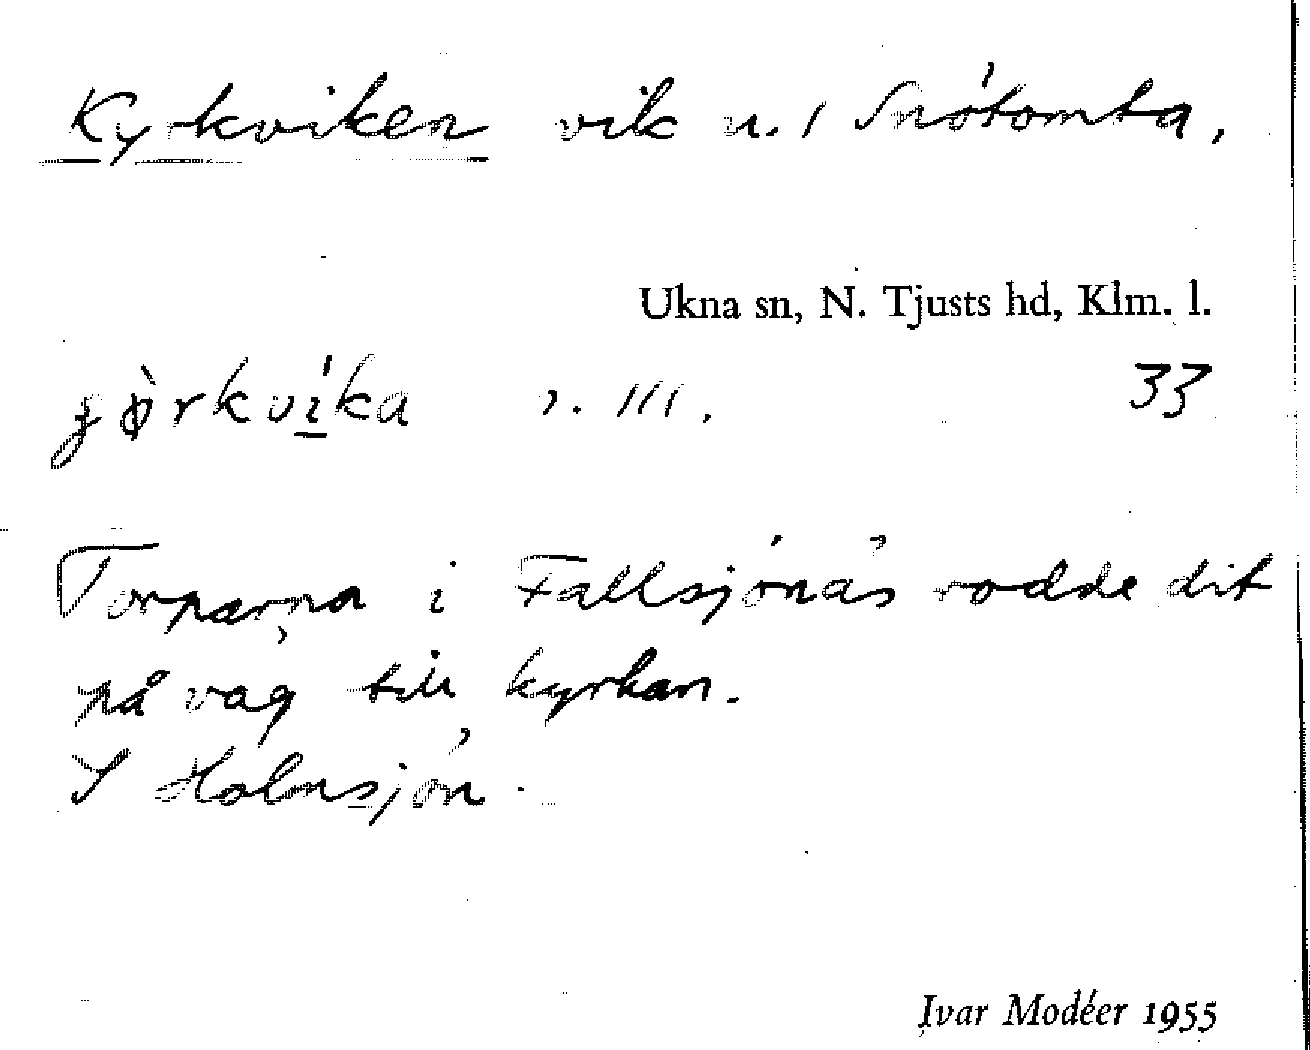 Kyrkviken vik u. / Snötomta,
Ukna sn, N. Tjusts hd, Klm. l.
33
Torparna i Fallsjönäs rodde dit
på väg till kyrkan.
I Holmsjön.
Ivar Modéer 1955